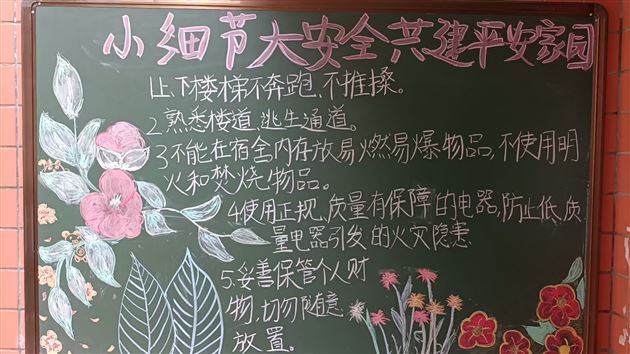 小细节大安全共建平安家园
1.上、下楼梯不奔跑、不推搡。
2.熟悉楼道、逃生通道。
3.不能在宿舍内存放易燃易爆物品,不使用明
火和焚烧物品。
4.使用正规、质量有保障的电器,防止低质
量电器引发的火灾隐患
5.妥善保管个人财
物,切勿随意
放置。